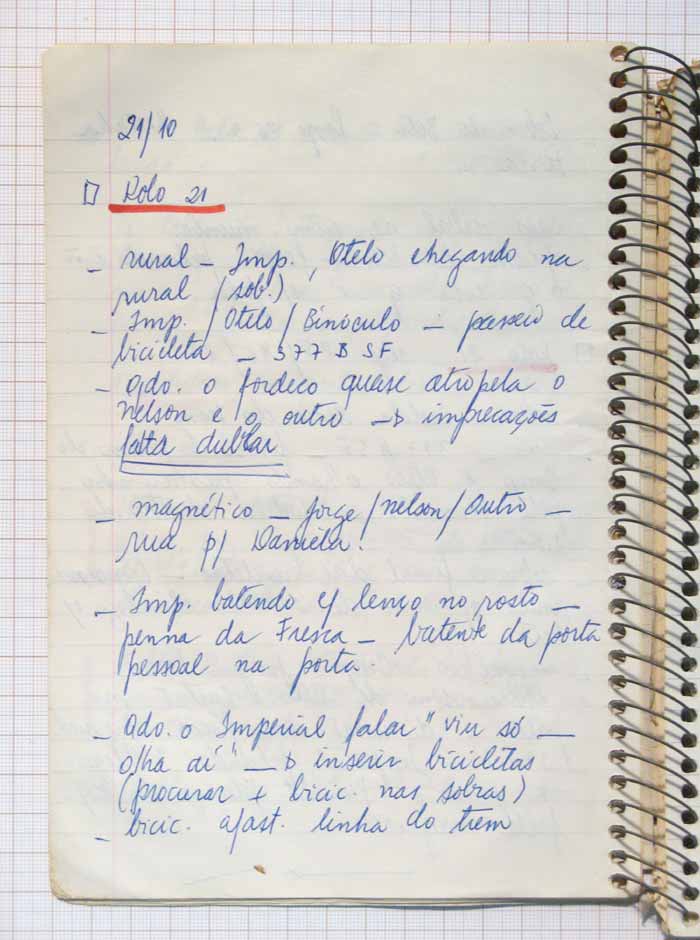 21/10
Rolo 21
- rural - Imp., Otelo chegando na
rural (sob.)
- Imp. / Otelo / Binóculo - passeio de
bicicleta - 377 B SF
- qdo. o fordeco quase atropela o
Nelson e o outro → imprecações
falta dublar
- magnético - Jorge / Nelson / Outro -
rua p/ Daniela.
- Imp. batendo c/ lenço no rosto -
penna da Fresca - batente da porta
pessoal na porta.
- qdo. o Imperial falar "viu só -
olha aí" → inserir bicicletas
(procurar + bicic. nas sobras)
- bicic. afast. linha do trem